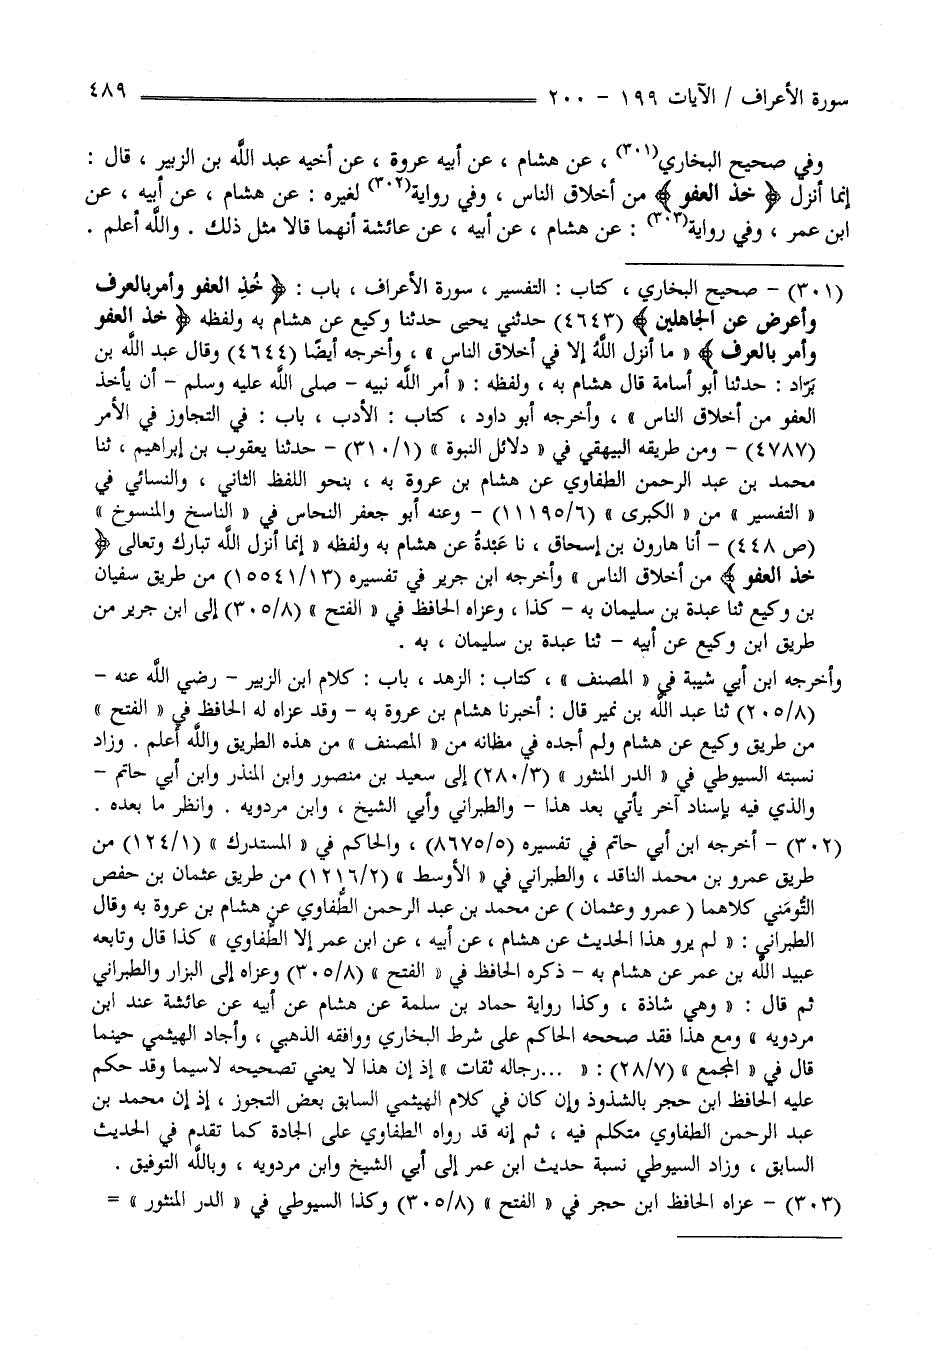 سورة الأعراف / الآيات ١٩٩ - ٢٠٠ ٤٨٩
وفي صحيح البخاري(٣٠١) ، عن هشام ، عن أبيه عروة ، عن أخيه عبد اللَّه بن الزبير ، قال :
إنما أنزل ﴿ خذ العفو ﴾ من أخلاق الناس ، وفي رواية(٣٠٢) لغيره : عن هشام ، عن أبيه ، عن
ابن عمر ، وفي رواية(٣٠٣) : عن هشام ، عن أبيه ، عن عائشة أنهما قالا مثل ذلك . واللَّه أعلم .
(٣٠١) - صحيح البخاري ، كتاب : التفسير ، سورة الأعراف ، باب : ﴿ خُذِ العفو وأمر بالعرف
وأعرض عن الجاهلين ﴾ (٤٦٤٣) حدثني يحيى حدثنا وكيع عن هشام به ولفظه ﴿ خذ العفو
وأمر بالعرف ﴾ « ما أنزل اللَّهُ إلا في أخلاق الناس » ، وأخرجه أيضًا (٤٦٤٤) وقال عبد اللَّه بن
بَرَّاد : حدثنا أبو أسامة قال هشام به ، ولفظه : « أمر اللَّه نبيه - صلى اللَّه عليه وسلم - أن يأخذ
العفو من أخلاق الناس » ، وأخرجه أبو داود ، كتاب : الأدب ، باب : في التجاوز في الأمر
(٤٧٨٧) - ومن طريقه البيهقي في « دلائل النبوة » (٣١٠/١) - حدثنا يعقوب بن إبراهيم ، ثنا
محمد بن عبد الرحمن الطفاوي عن هشام بن عروة به ، بنحو اللفظ الثاني ، والنسائي في
« التفسير » من « الكبرى » (١١١٩٥/٦) - وعنه أبو جعفر النحاس في « الناسخ والمنسوخ »
(ص ٤٤٨) - أنا هارون بن إسحاق ، نا عَبْدةُ عن هشام به ولفظه « إنما أنزل اللَّه تبارك وتعالى ﴿
خذ العفو ﴾ من أخلاق الناس » وأخرجه ابن جرير في تفسيره (١٥٥٤١/١٣) من طريق سفيان
بن وكيع ثنا عبدة بن سليمان به - كذا ، وعزاه الحافظ في « الفتح » (٣٠٥/٨) إلى ابن جرير من
طريق ابن وكيع عن أبيه - ثنا عبدة بن سليمان ، به .
وأخرجه ابن أبي شيبة في « المصنف » ، كتاب : الزهد ، باب : كلام ابن الزبير - رضي اللَّه عنه -
(٢٠٥/٨) ثنا عبد اللَّه بن نمير قال : أخبرنا هشام بن عروة به - وقد عزاه له الحافظ في « الفتح »
من طريق وكيع عن هشام ولم أجده في مظانه من « المصنف » من هذه الطريق واللَّه أعلم . وزاد
نسبته السيوطي في « الدر المنثور » (٢٨٠/٣) إلى سعيد بن منصور وابن المنذر وابن أبي حاتم -
والذي فيه بإسناد آخر يأتي بعد هذا - والطبراني وأبي الشيخ ، وابن مردويه . وانظر ما بعده .
(٣٠٢) - أخرجه ابن أبي حاتم في تفسيره (٨٦٧٥/٥) ، والحاكم في « المستدرك » (١٢٤/١) من
طريق عمرو بن محمد الناقد ، والطبراني في « الأوسط » (١٢١٦/٢) من طريق عثمان بن حفص
التُّومَني كلاهما ( عمرو وعثمان ) عن محمد بن عبد الرحمن الطُّفاوي عن هشام بن عروة به وقال
الطبراني : « لم يرو هذا الحديث عن هشام ، عن أبيه ، عن ابن عمر إلا الطُّفاوي » كذا قال وتابعه
عبيد اللَّه بن عمر عن هشام به - ذكره الحافظ في « الفتح » (٣٠٥/٨) وعزاه إلى البزار والطبراني
ثم قال : « وهي شاذة ، وكذا رواية حماد بن سلمة عن هشام عن أبيه عن عائشة عند ابن
مردويه » ومع هذا فقد صححه الحاكم على شرط البخاري ووافقه الذهبي ، وأجاد الهيثمي حينما
قال في « المجمع » (٢٨/٧) : « ...رجاله ثقات » إذ إن هذا لا يعني تصحيحه لاسيما وقد حكم
عليه الحافظ ابن حجر بالشذوذ وإن كان في كلام الهيثمي السابق بعض التجوز ، إذ إن محمد بن
عبد الرحمن الطفاوي متكلم فيه ، ثم إنه قد رواه الطفاوي على الجادة كما تقدم في الحديث
السابق ، وزاد السيوطي نسبة حديث ابن عمر إلى أبي الشيخ وابن مردويه ، وباللَّه التوفيق .
(٣٠٣) - عزاه الحافظ ابن حجر في « الفتح » (٣٠٥/٨) وكذا السيوطي في « الدر المنثور » =